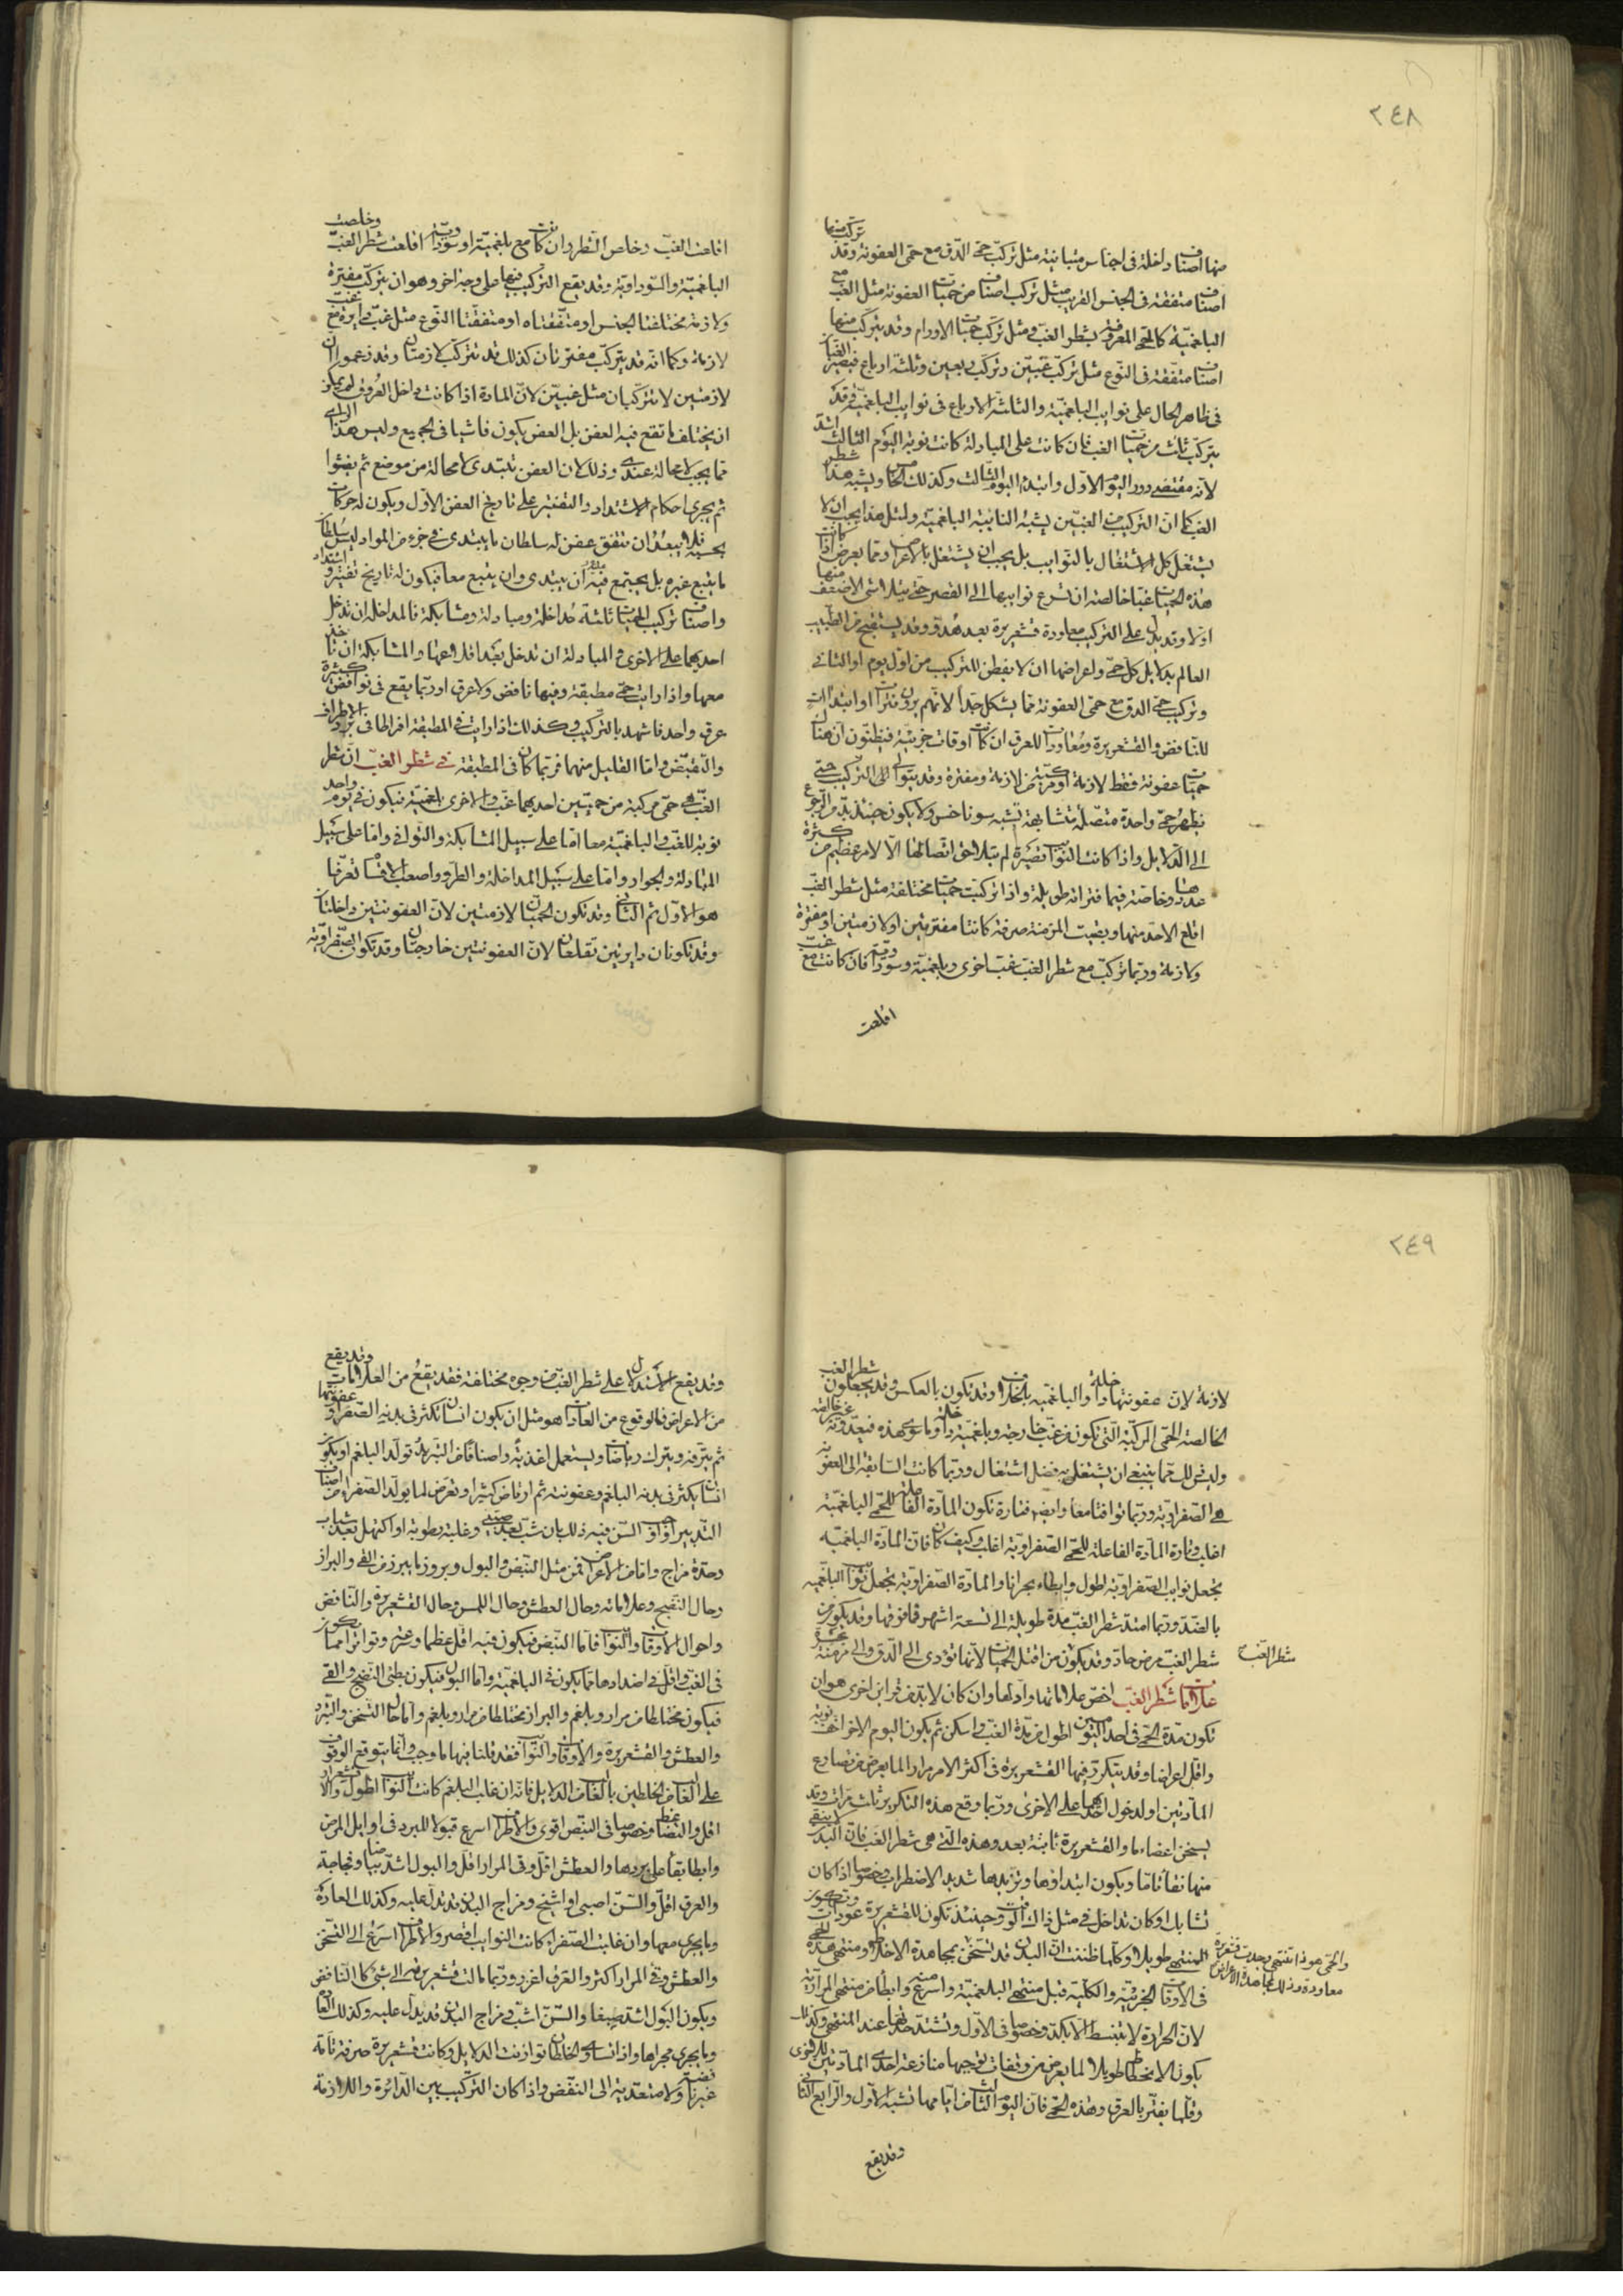 ٢٤٨
منها اصناف داخلة فى اجناس متباينة مثل تركب حمى الدق مع حمى العفونة وقد تتركب منها
اصناف متفقة فى الجنس القريب مثل تركب اصناف من حميات العفونة مثل الغب مع
البلغمية كالحمى المعروفة بشطر الغب ومثل تركب حميات الاورام وقد يتركب منها
اصناف متفقة فى النوع مثل تركب غبين وتركب ربعين وثلثة ارباع فيصير الغبان
فى ظاهر الحال على نوايب البلغمية والثلثة الارباع فى نوايب البلغمية وقد
يتركب ثلث من حميات الغب فان كانت على المبادلة كانت نوبة اليوم الثالث اشد
لانه مقتضى دور اليوم الاول وابتداء اليوم الثالث وكذلك الخامس ويشبه هذا شطر
الغب كما ان التركيب من الغبين يشبه النائبة البلغمية ولمثل هذا يجب ان لا
يشتغل كل الاشتغال بالنوايب بل يجب ان يشتغل بالاعراض ومما يعرض اذا كانت
هذه الحميات غبا خالصة ان تسرع نوايبها الى القصر حتى يتلاشى الاضعف منها
اولا وقد يدل على التركيب معاودة قشعريرة بعد هدو وقد يستقبح من الطبيب
العالم بدلايل كل حمى واعراضها ان لا يفطن للتركيب من اول يوم او الثانى
وتركيب حمى الدق مع حمى العفونة مما يشكل جدا لانهم يرون فترات او ابتداآت
للنافض والقشعريرة ومعاودات للعرق ان كانت اوقات جزئية فيظنون ان هناك
حميات عفونة فقط لازمة او مركبة من لازمة ومفترة وقد يتوالى التركيب حتى
يظهر حمى واحدة متصلة متشابهة تشبه سوناخس ولا يكون حينئذ بد من الرجوع
الى الدلايل واذا كانت النوايب قصيرة لم يتلاحق اتصالها الا لامر عظيم من كثرة
عددها وخاصة فيما فتراته طويلة واذا تركبت حميات مختلفة مثل شطر الغب
اقلع الاحد منها وبقيت المزمنة صرفة كانتا مفترتين او لازمتين او مفترة
ولازمة وربما تركب مع شطر الغب غب اخرى وبلغمية وسوداوية فان كانت مع غب
اقلعت
اقلعت الغب وخلص الشطر وان كانت مع بلغمية او سوداوية اقلعت شطر الغب وخلصت
البلغمية والسوداوية وقد يقع التركيب فيها على وجه اخر وهو ان يتركب مفترة
ولازمة مختلفتا الجنس او متفقتاه او متفقتا النوع مثل غب دايرة مع غب
لازمة وكما انه قد يتركب مفترتان كذلك قد تتركب لازمتان وقد زعموا ان
لازمتين لا تتركبان مثل غبين لان المادة اذا كانت داخل العروق لم يمكن
ان يختلف ما تقع فيه العفن بل العفن يكون فاشيا فى الجميع وليس هذا الراى
مما يجب لا محالة عندى وذلك لان العفن تبتدى لا محالة من موضع ثم يفشوا
ثم يجرى احكام الاشتداد والتفتير على تاريخ العفن الاول ويكون له حركات
بحسبه فلا يبعد ان يتفق عفن له سلطان ما يبتدى فى جزء من المواد ليس سلطان
ما يتبع غيره بل يجتمع فيه ان يبتدى وان يتبع معا فيكون له تاريخ تفتير واشتداد
واصناف تركيب الحميات ثلثة مداخلة ومبادلة ومشابكة فالمداخلة ان تدخل
احديهما على الاخرى والمبادلة ان تدخل بعد اقلاعها والمشابكة ان تاخذ
معها واذا رايت حمى مطبقة وفيها نافض ولا عرق او ربما يقع فى نوافض كثيرة
عرق واحد فاشهد بالتركيب وكذلك اذا رايت فى المطبقة افراطا فى برد الاطراف
والتقبض واما القليل منهما فربما كان فى المطبقة فى شطر الغب ان شطر
الغب هى حمى مركبة من حميتين احديهما غب والاخرى بلغمية فيكون فى يوم واحد
نوبة للغب والبلغمية معا اما على سبيل المشابكة والتوافى واما على سبيل
المبادلة والجوار واما على سبيل المداخلة والطرو واصعب الاقسام تعرفا
هو الاول ثم الثانى وقد تكون الحميتان لازمتين لان العفونتين داخلتان
وقد تكونان دايرتين تقلعان لان العفونتين خارجتان وقد تكون الصفراوية
٢٤٩
لازمة لان عفونتها داخلة والبلغمية بخلافها وقد تكون بالعكس وقد يجعلون شطر الغب
الخالصة الحمى المركبة التى تكون من غب خارجة وبلغمية داخلة وما سوى هذه فيعدونه غير خالصة
وليس ذلك مما ينبغى ان يشتغل به فضل اشتغال وربما كانت السابقة الى العفونة
هى الصفراوية وربما توافتا معا وايضا فتارة تكون المادة الفاعلة للحمى البلغمية
اغلب وتارة المادة الفاعلة للحمى الصفراوية اغلب وكيف كان فان المادة البلغمية
تجعل نوايب الصفراوية اطول وابطاء بحرانا والمادة الصفراوية تجعل نوايب البلغمية
بالضد وربما امتد شطر الغب مدة طويلة الى تسعة اشهر فما فوقها وقد يكون من
شطر الغب مرض حاد وقد يكون من اقتل الحميات لانها تؤدى الى الدق والى مزمنة عسرة
علامات شطر الغب اخص علاماتها وادلها وان كان لا بد من قراين اخرى هو ان
تكون مدة الحمى فى احد اليومين اطول من مدة الغب واسكن ثم يكون اليوم الاخر اخف نوبة
واقل اعراضا وقد يتكرر فيها القشعريرة فى اكثر الامر مرارا لما يعرض من تصارع
المادتين او لدخول احديهما على الاخرى وربما وقع هذه التكرير ثلث مرات وقد
يسخن اعضاءها والقشعريرة ثابتة بعد وهذه التى هى شطر الغب فان البدن لا ينقى
منها نقاء تاما ويكون ابتداؤها وتزيدها شديد الاضطراب وخصوصا اذا كان
تشابك او كان تداخل فى مثل ذلك الوقت وحينئذ تكون للقشعريرة عودات وتكون
المنتهى طويلا وكلما ظننت ان البدن قد تسخن مجاهدة الاخلاط ومنتهى هذه الحمى
فى الاوقات الجزئية والكلية قبل منتهى البلغمية واسرع منه وابطأ من منتهى المرارية
لان الحرارة لا تنبسط الا بكد وخصوصا فى الاول وتشتد حدتها عند المنتهى وكذلك
يكون الانحطاط طويلا لما يعرض من وقفات توجبها منازعة احدى المادتين للاخرى
وقلما يفتر بالعرق وهذه الحمى فان اليوم الثالث من ايامها تشبه الاول والرابع الثانى
شطر الغب
وقد يقع
وقد يقع الاستدلال على شطر الغب من وجوه مختلفة فقد يقع من العلامات وقد يقع
من الاعراض فالوقوع من العادات هو مثل ان يكون انسان تكثر فى بدنه الصفراء وعفونتها
ثم يترفه ويترك رياضات ويستعمل اغذية واصنافا من التدبير تولد البلغم او يكون
انسان يكثر فى بدنه البلغم وعفونته ثم ارتاض كثيرا وتعرض لما يولد الصفراء من اصناف
التدبير او السن فيه ذلك بان شب بعد صبى وغلبة رطوبة او اكتهل بعد شباب
وحدة مزاج واما من الاعراض فمن مثل النبض والبول وبروز ما يبرز من القى والبراز
وحال النضج وعلاماته وحال العطش وحال اللمس وحال القشعريرة والنافض
واحوال الاوقات والنوايب فاما النبض فيكون فيه اقل عظما وسرعة وتواترا مما يكون
فى الغب واقل فى اضدادها مما يكون فى البلغمية واما البول فيكون بطئ النضج والقى
فيكون مختلطا من مرار وبلغم والبراز مختلطا من مرار وبلغم واما حال التسخن والتبرد
والعطش والقشعريرة والاوقات والنوايب فقد قلنا فيها ما وجب وانما يتوقع الوقوف
على الغالب من الخلطين بالغالب من الدلايل فانه ان غلب البلغم كانت النوايب اطول والاقشعرار
اقل والتضاغط وخصوصا فى النبض اقوى والاطراف اسرع قبولا للبرد فى اوايل المرض
وابطا بقاء على بردها والعطش اقل وفى المرار اقل والبول اشد بياضا وفجاجة
والعرق اقل والسن اصبى او اشيخ ومزاج البدن قد تدل عليه وكذلك العادة
وما يجرى معها وان غلبت الصفراء كانت النوايب اقصر والاطراف اسرع الى التسخن
والعطش وقى المرار اكثر والعرق اغزر وربما مالت قشعريرة الى شئ كالنافض
ويكون البول اشد صبغا والسن اشب ومزاج البدن قد يدل عليه وكذلك العادة
وما يجرى مجراها واذا تساوى الخلطان توازنت الدلايل وكانت قشعريرة صرفة تامة
غير ناقصة ولا متعدية الى النفض واذا كان التركيب بين الدائرة واللازمة